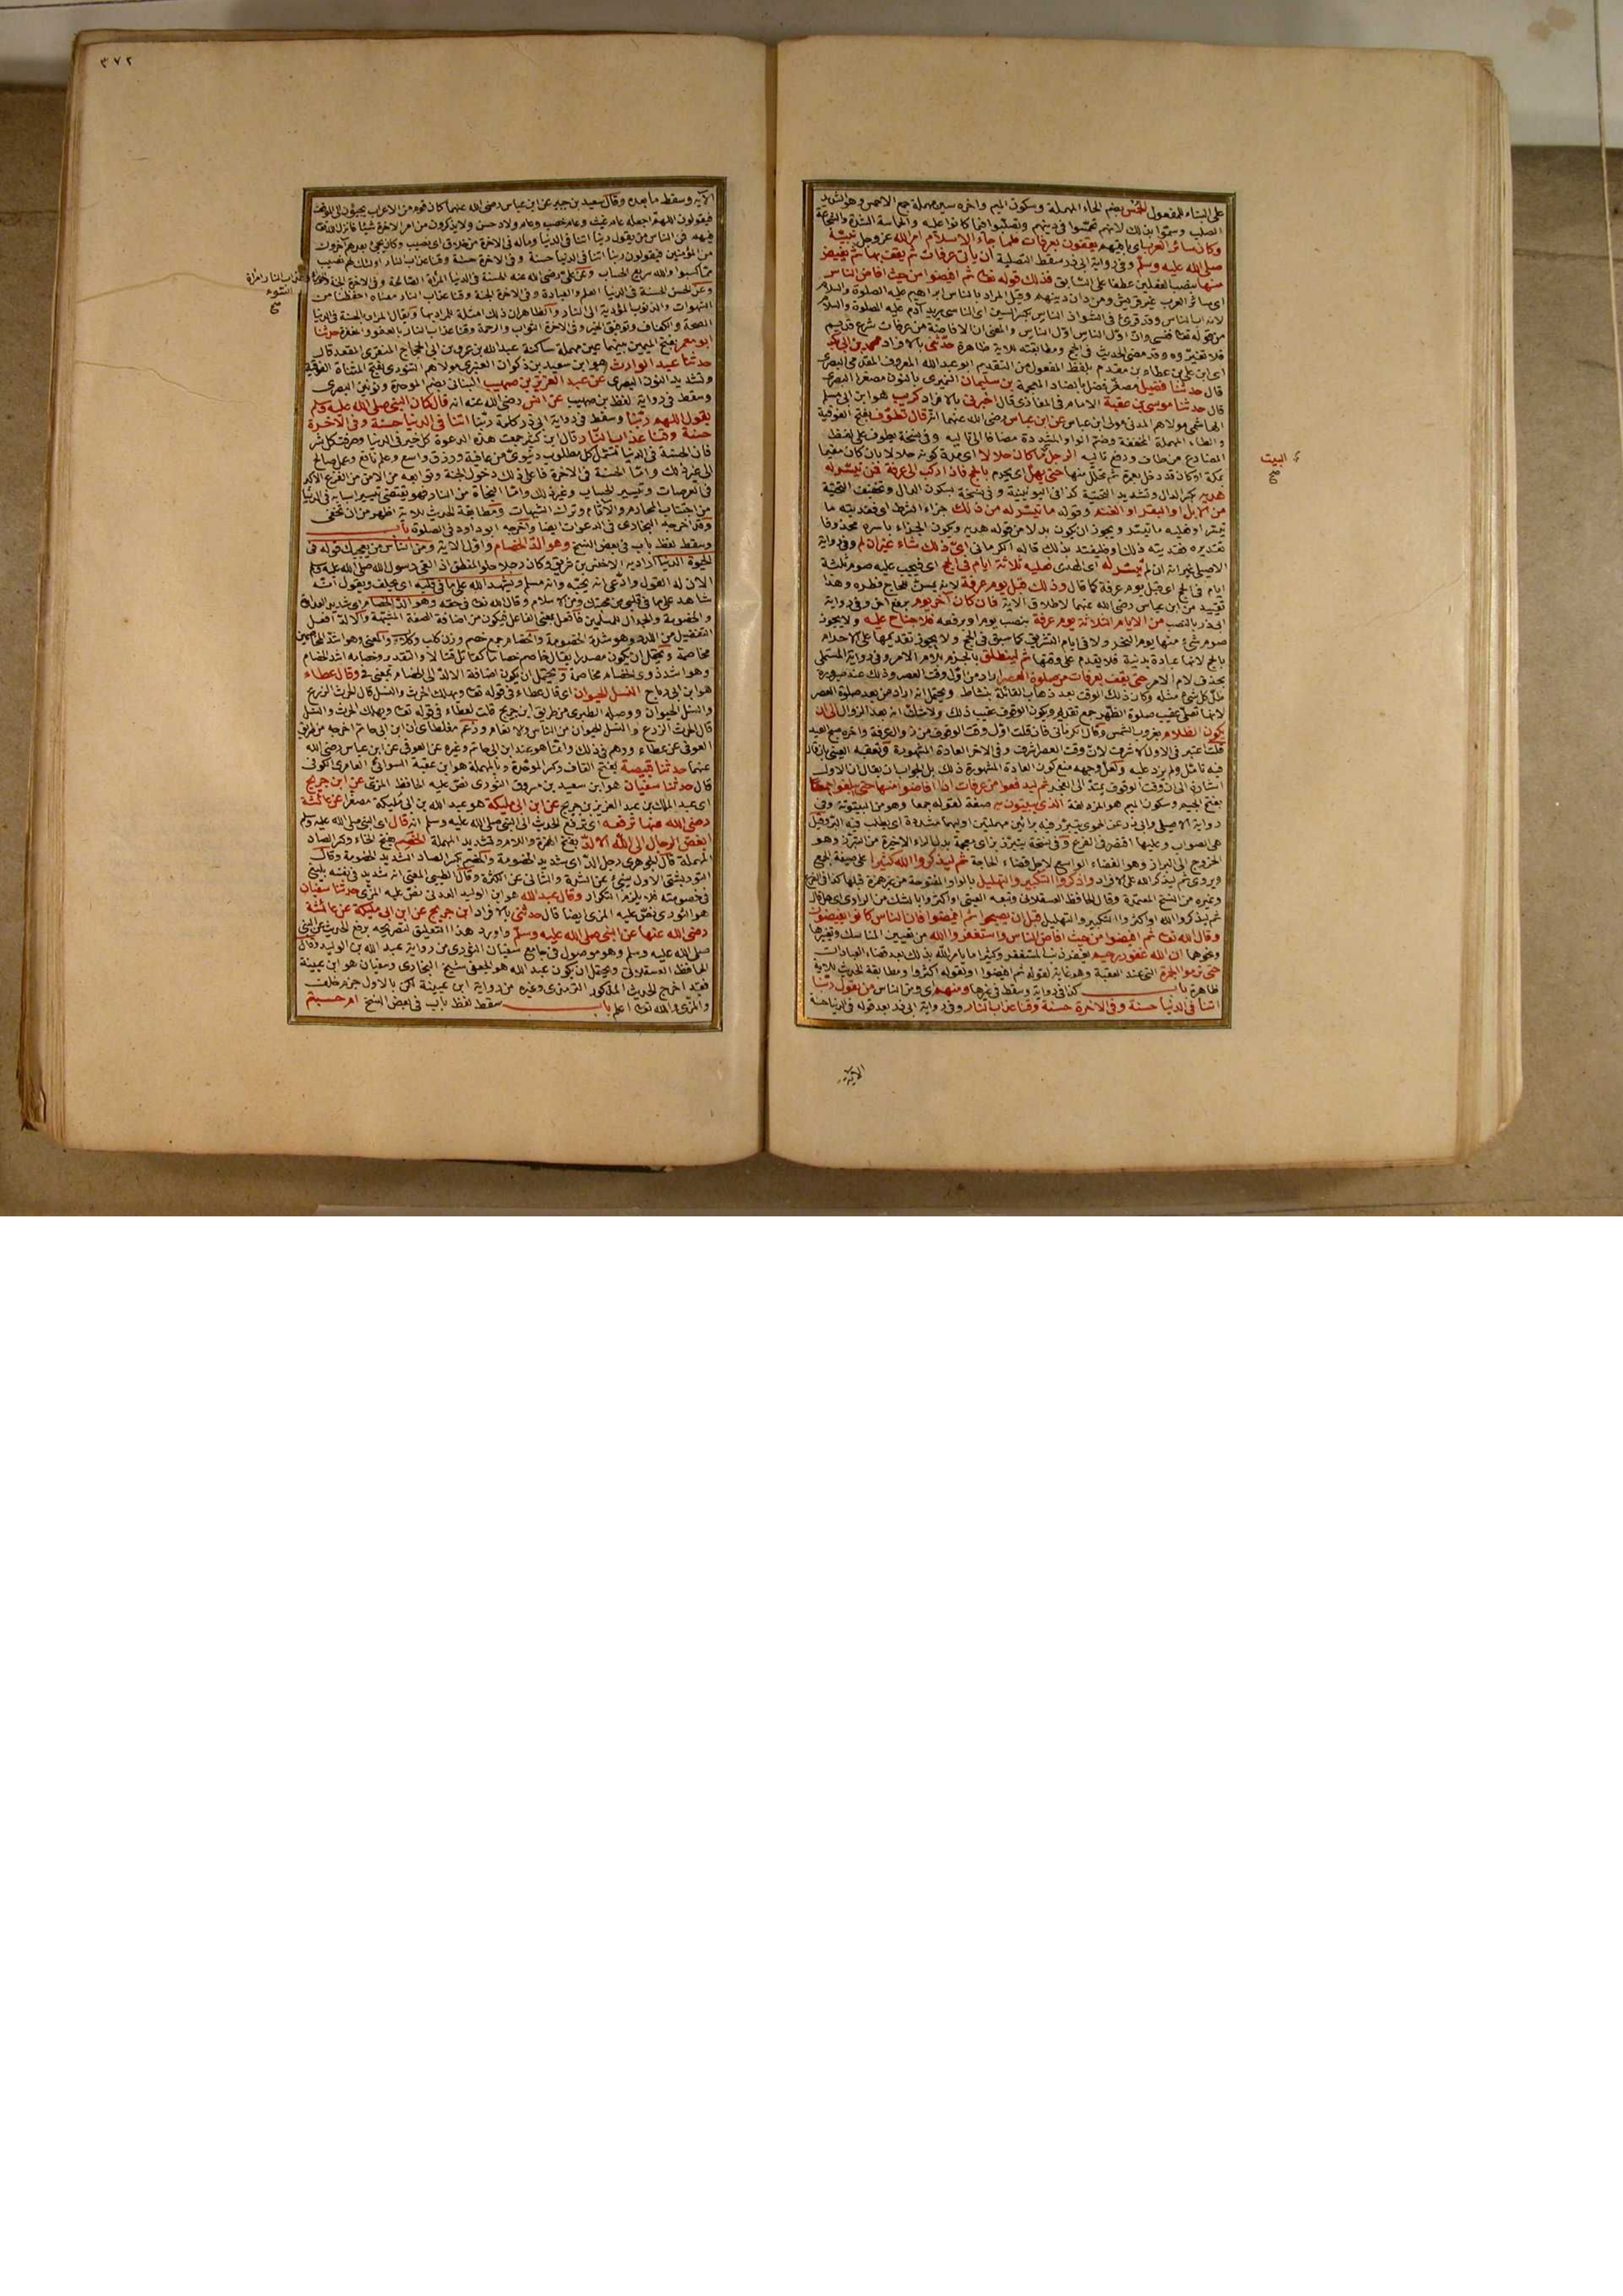 على البناء للمفعول الحمس بضم الحاء المهملة وسكون الميم واخره سين مهملة جمع الاحمس وهو الشديد
الصلب وسموا بذلك لانهم تحمسوا فى دينهم وتصلبوا فيما كانوا عليه والحماسة الشدة والشجاعة
وكان سائر العرب اى باقيهم يقفون بعرفات فلما جاء الاسلام امر الله عز وجل نبيه
صلى الله عليه وسلم وفى رواية ابى ذر سقط التصلية ان يأتى عرفات ثم يقف بها ثم يفيض
منها بنصب الفعلين عطفا على السابق فذلك قوله تعالى ثم افيضوا من حيث افاض الناس
اى سائر العرب غير قريش ومن دان دينهم وقيل المراد بالناس ابراهيم عليه الصلوة والسلام
من قوله تعالى فنسى وانه اول الناس والمعنى ان الافاضة من عرفات شرع قديم
فلا تغيروه وقد مضى الحديث فى الحج ومطابقته للاية ظاهرة حدثنى بالافراد محمد بن ابى بكر
اى ابن على بن عطاء بن مقدم بلفظ المفعول من التقديم ابو عبد الله المعروف المقدمى البصرى
قال حدثنا فضيل مصغر فضل بالضاد المعجمة بن سليمان النميرى بالنون مصغرا البصرى
قال حدثنا موسى بن عقبة الامام فى المغازى قال اخبرنى بالافراد كريب هو ابن ابى مسلم
الهاشمى مولاهم المدنى مولى ابن عباس عن ابن عباس رضى الله عنهما انه قال تطوف بفتح الفوقية
والطاء المهملة المخففة وضم الواو المشددة مضافا الى تاليه وفى نسخة يطوف على لفظ
المضارع من طاف ورفع تاليه الرجل ما كان حلالا اى مدة كونه حلالا بان كان مقيما
بمكة او كان قد دخل بعمرة ثم تحلل منها حتى يهل اى يحرم بالحج فاذا ركب الى عرفة فمن تيسر له
هديه بكسر الدال وتشديد التحتية كذا فى اليونينية وفى نسخة بسكون الدال وتخفيف التحتية
من الابل او البقر او الغنم وقوله ما تيسر له من ذلك جزاء الشرط اى ففديته ما
تيسر او فعليه ما تيسر ويجوز ان يكون بدلا من قوله هديه ويكون الجزاء باسره محذوفا
تقديره ففديته ذلك او فليفتد بذلك قاله الكرمانى اى ذلك شاء غير ان لم وفى رواية
الاصيلى غير انه ان لم تيسر له اى الهدى فعليه ثلاثة ايام فى الحج اى فيجب عليه صوم ثلثة
ايام فى الحج اى قبل يوم عرفة كما قال وذلك قبل يوم عرفة لانه يسن للحاج فطره وهذا
تقييد من ابن عباس رضى الله عنهما لاطلاق الاية فان كان آخر يوم برفع آخر وفى رواية
ابى ذر بالنصب من الايام الثلاثة يوم عرفة بنصب يوم او برفعه فلا جناح عليه ولا يجوز
صوم شئ منها يوم النحر ولا فى ايام التشريق كما سبق فى الحج ولا يجوز تقديمها على الاحرام
بالحج لانها عبادة بدنية فلا يقدم على وقتها ثم لينطلق بالجزم بلام الامر وفى رواية المستملى
بحذف لام الامر حتى يقف بعرفات من صلوة العصر اراد من اول وقت العصر وذلك عند صيرورة
ظل كل شئ مثله وكان ذلك الوقت بعد ذهاب القائلة بنشاط ويحتمل انه اراد من بعد صلوة العصر
لانها تصلى عقيب صلوة الظهر جمع تقديم ويكون الوقوف عقيب ذلك ولا شك انه بعد الزوال الى ان
يكون الظلام بغروب الشمس وقال الكرمانى فان قلت اول وقت الوقوف من زوال عرفة واخره صبح العيد
قلت اعتبر فى الاول الاشرف لان وقت العصر اشرف وفى الاخر العادة المشهورة وتعقبه العينى بان قال
فيه تامل ولم يزد عليه ولعل وجهه منع كون العادة المشهورة ذلك بل الجواب ان يقال ان الاول
اشارة الى ان وقت الوقوف يمتد الى الفجر ثم ليدفعوا من عرفات اذا افاضوا منها حتى يبلغوا جمعا
بفتح الجيم وسكون الميم هو المزدلفة الذى يبيتون به صفة لقوله جمعا وهو من البيتوتة وفى
الخروج الى البراز وهو الفضاء الواسع لاجل قضاء الحاجة ثم ليذكروا الله كثيرا على صيغة الجمع
ويروى ثم ليذكر الله على الافراد واذكروا التكبير والتهليل بالواو المفتوحة من غير همزة قبلها كذا فى الفرع
ثم ليذكروا الله او اكثروا التكبير والتهليل قبل ان يصبحوا ثم افيضوا فان الناس كانوا يفيضون
وقال الله تعالى ثم افيضوا من حيث افاض الناس واستغفروا الله من تغيير المناسك وتغيرها
ونحوها ان الله غفور رحيم يغفر ذنب المستغفر وكثيرا ما يأمر الله بذكره بعد قضاء العبادات
حتى ترموا الجمرة التى عند العقبة وهو غاية لقوله ثم افيضوا او لقوله اكثروا ومطابقة الحديث للاية
ظاهرة باب كذا فى رواية وسقط فى غيرها ومنهم اى ومن الناس من يقول ربنا
اتنا فى الدنيا حسنة وفى الاخرة حسنة وقنا عذاب النار وفى رواية ابى ذر بعد قوله فى الدنيا حسنة
البيت
صح
الآية
٣٧٢
الآية وسقط ما بعده وقال سعيد بن جبير عن ابن عباس رضى الله عنهما كان قوم من الاعراب يجيئون الى الموقف
فيقولون اللهم اجعله عام غيث وعام خصب وعام ولاد حسن ولا يذكرون من امر الاخرة شيئا فانزل الله تعالى
فيهم فمن الناس من يقول ربنا اتنا فى الدنيا وماله فى الاخرة من خلاق اى نصيب وكان يجئ بعدهم آخرون
من المؤمنين فيقولون ربنا اتنا فى الدنيا حسنة وفى الاخرة حسنة وقنا عذاب النار اولئك لهم نصيب
مما كسبوا والله سريع الحساب وعن على رضى الله عنه الحسنة فى الدنيا المرأة الصالحة وفى الاخرة الجنة
وعذاب النار امرأة السوء
صح
وعن الحسن الحسنة فى الدنيا العلم والعبادة وفى الاخرة الجنة وقنا عذاب النار معناه احفظنا من
الشهوات والذنوب المؤدية الى النار والظاهر ان ذلك امثلة للمراد بها ويقال المراد بالحسنة فى الدنيا
الصحة والكفاف وتوفيق الخير وفى الاخرة الثواب والرحمة وقنا عذاب النار بالعفو والمغفرة حدثنا
ابو معمر بفتح الميمين بينهما عين مهملة ساكنة عبد الله بن عمرو بن ابى الحجاج المنقرى المقعد قال
حدثنا عبد الوارث هو ابن سعيد بن ذكوان العنبرى مولاهم التنورى بفتح المثناة الفوقية
وتشديد النون البصرى عن عبد العزيز بن صهيب البنانى بضم الموحدة ونونين البصرى
وسقط فى رواية لفظ بن صهيب عن انس رضى الله عنه انه قال كان النبى صلى الله عليه وسلم
يقول اللهم ربنا وسقط فى رواية ابى ذر كلمة ربنا اتنا فى الدنيا حسنة وفى الاخرة
حسنة وقنا عذاب النار قال ابن كثير جمعت هذه الدعوة كل خير فى الدنيا وصرفت كل شر
فان الحسنة فى الدنيا تشمل كل مطلوب دنيوى من عافية ورزق واسع وعلم نافع وعمل صالح
الى غير ذلك واما الحسنة فى الاخرة فاعلى ذلك دخول الجنة وتوابعه من الامن من الفزع الاكبر
فى العرصات وتيسير الحساب وغير ذلك واما النجاة من النار فهو يقتضى تيسير اسبابه فى الدنيا
من اجتناب المحارم والآثام وترك الشبهات ومطابقة الحديث للاية اظهر من ان تخفى
وقد اخرجه البخارى فى الدعوات ايضا واخرجه ابو داود فى الصلوة باب
وسقط لفظ باب فى بعض النسخ وهو الد الخصام واول الاية ومن الناس من يعجبك قوله فى
الحيوة الدنيا اراد به الاخنس بن شريق وكان رجلا حلو المنطق اذا لقى رسول الله صلى الله عليه وسلم
الان له القول وادعى انه يحبه وانه مسلم ويشهد الله على ما فى قلبه اى يحلف ويقول الله
شاهد على ما فى قلبى من محبتك ومن الاسلام وقال الله تعالى فى حقه وهو الد الخصام اى شديد العداوة
والخصومة والجدال للمسلمين فافعل بمعنى الفاعل فيكون من اضافة الصفة المشبهة والالد افعل
التفضيل من اللدد وهو شدة الخصومة والخصام جمع خصم وزن كلب وكلاب والمعنى وهو اشد المخاصمين
مخاصمة ويحتمل ان يكون مصدرا يقال خاصم خصاما كقاتل قتالا والتقدير وخصامه اشد الخصام
وهو اشد ذوى الخصام مخاصمة ويحتمل ان يكون اضافة الالد الى الخصام بمعنى فى وقال عطاء
هو ابن ابى رباح النسل الحيوان اى قال عطاء فى قوله تعالى ويهلك الحرث والنسل قال الحرث الزرع
والنسل الحيوان ووصله الطبرى من طريق ابن جريج قلت لعطاء فى قوله تعالى ويهلك الحرث والنسل
قال الحرث الزرع والنسل الحيوان من الناس والانعام وزعم مغلطاى ان ابن ابى حاتم اخرجه من طريق
العوفى عن عطاء ووهم فى ذلك وانما هو عند ابن ابى حاتم وغيره عن العوفى عن ابن عباس رضى الله
عنهما حدثنا قبيصة بفتح القاف وكسر الموحدة وبالمهملة هو ابن عقبة السوائى العامرى الكوفى
قال حدثنا سفيان هو ابن سعيد بن مسروق الثورى نص عليه الحافظ المزى عن ابن جريج
اى عبد الملك بن عبد العزيز بن جريج عن ابن ابى مليكة هو عبد الله بن ابى مليكة مصغرا عن عائشة
رضى الله عنها ترفعه اى ترفع الحديث الى النبى صلى الله عليه وسلم انه قال اى النبى صلى الله عليه وسلم
ابغض الرجال الى الله الالد بفتح الهمزة واللام وتشديد المهملة الخصم بفتح الخاء وكسر الصاد
المهملة قال الجوهرى رجل الد اى شديد الخصومة والخصم بكسر الصاد الشديد الخصومة وقال
التوربشتى الاول ينبئ عن الشدة والثانى عن الكثرة وقال الطيبى المعنى انه شديد فى نفسه بليغ
فى خصومته فلا يلزم التكرار وقال عبد الله هو ابن الوليد العدنى نص عليه المزى حدثنا سفيان
هو الثورى نص عليه المزى ايضا قال حدثنى بالافراد ابن جريج عن ابن ابى مليكة عن عائشة
رضى الله عنها عن النبى صلى الله عليه وسلم واورد هذا التعليق لتصريحه برفع الحديث عن النبى
صلى الله عليه وسلم وهو موصول فى جامع سفيان الثورى من رواية عبد الله بن الوليد وقال
الحافظ العسقلانى ويحتمل ان يكون عبد الله هو الجعفى شيخ البخارى وسفيان هو ابن عيينة
فقد اخرج الحديث المذكور الترمذى وغيره من رواية ابن عيينة لكن بالاول جزم خلف
والمزى والله تعالى اعلم باب سقط لفظ باب فى بعض النسخ ام حسبتم